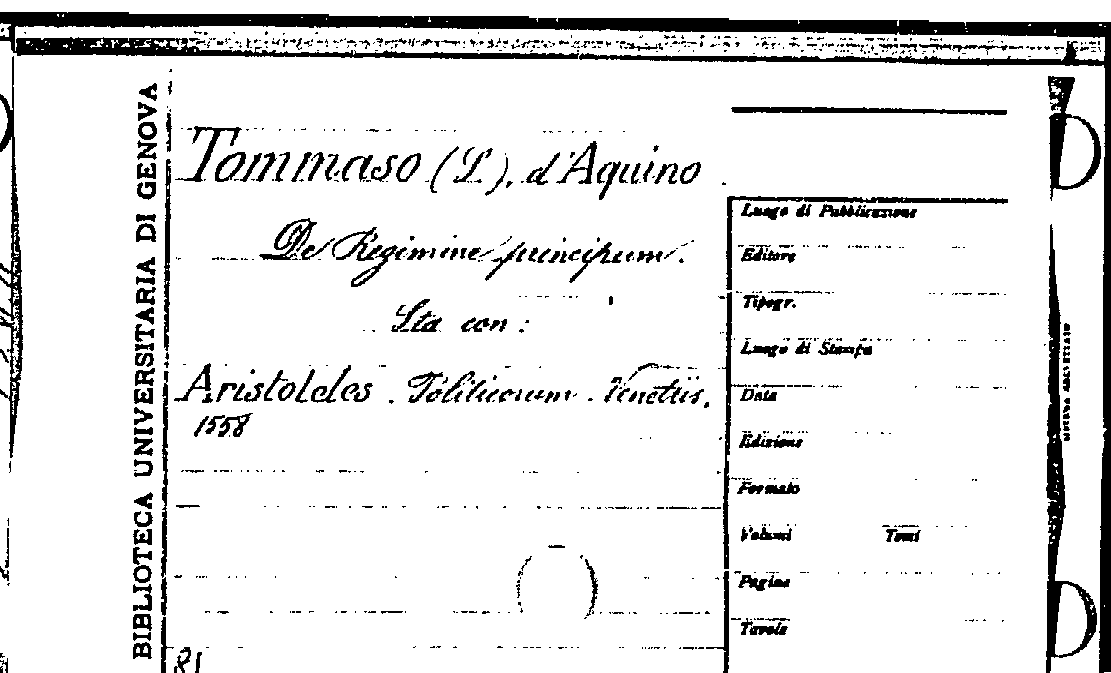 BIBLIOTECA UNIVERSITARIA DI GENOVA
Tommaso (S.), d'Aquino
De Regimine principum.
Sta con:
Aristoteles. Politicorum. Venetiis,
1558
R1
Luogo di Pubblicazione
Editore
Tipogr.
Luogo di Stampa
Data
Edizione
Formato
Volumi Tomi
Pagine
Tavole